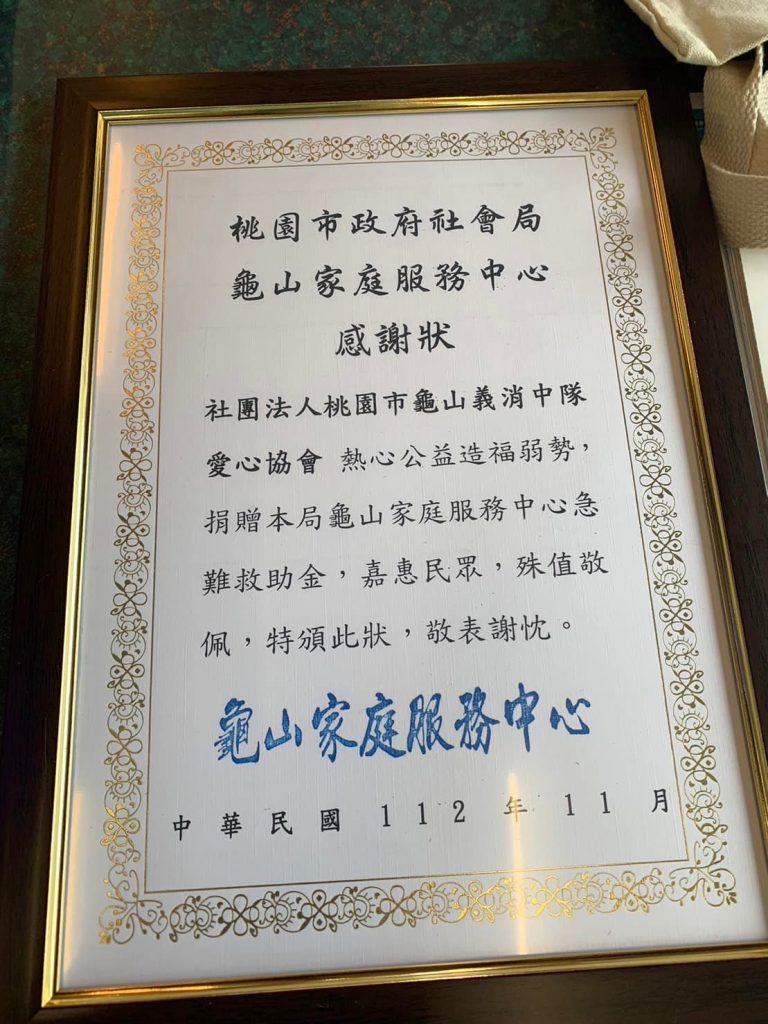 桃園市政府社會局
龜山家庭服務中心
感謝狀
社團法人桃園市龜山義消中隊
愛心協會 熱心公益造福弱勢，
捐贈本局龜山家庭服務中心急
難救助金，嘉惠民眾，殊值敬
佩，特頒此狀，敬表謝忱。
龜山家庭服務中心
中華民國 112 年 11 月